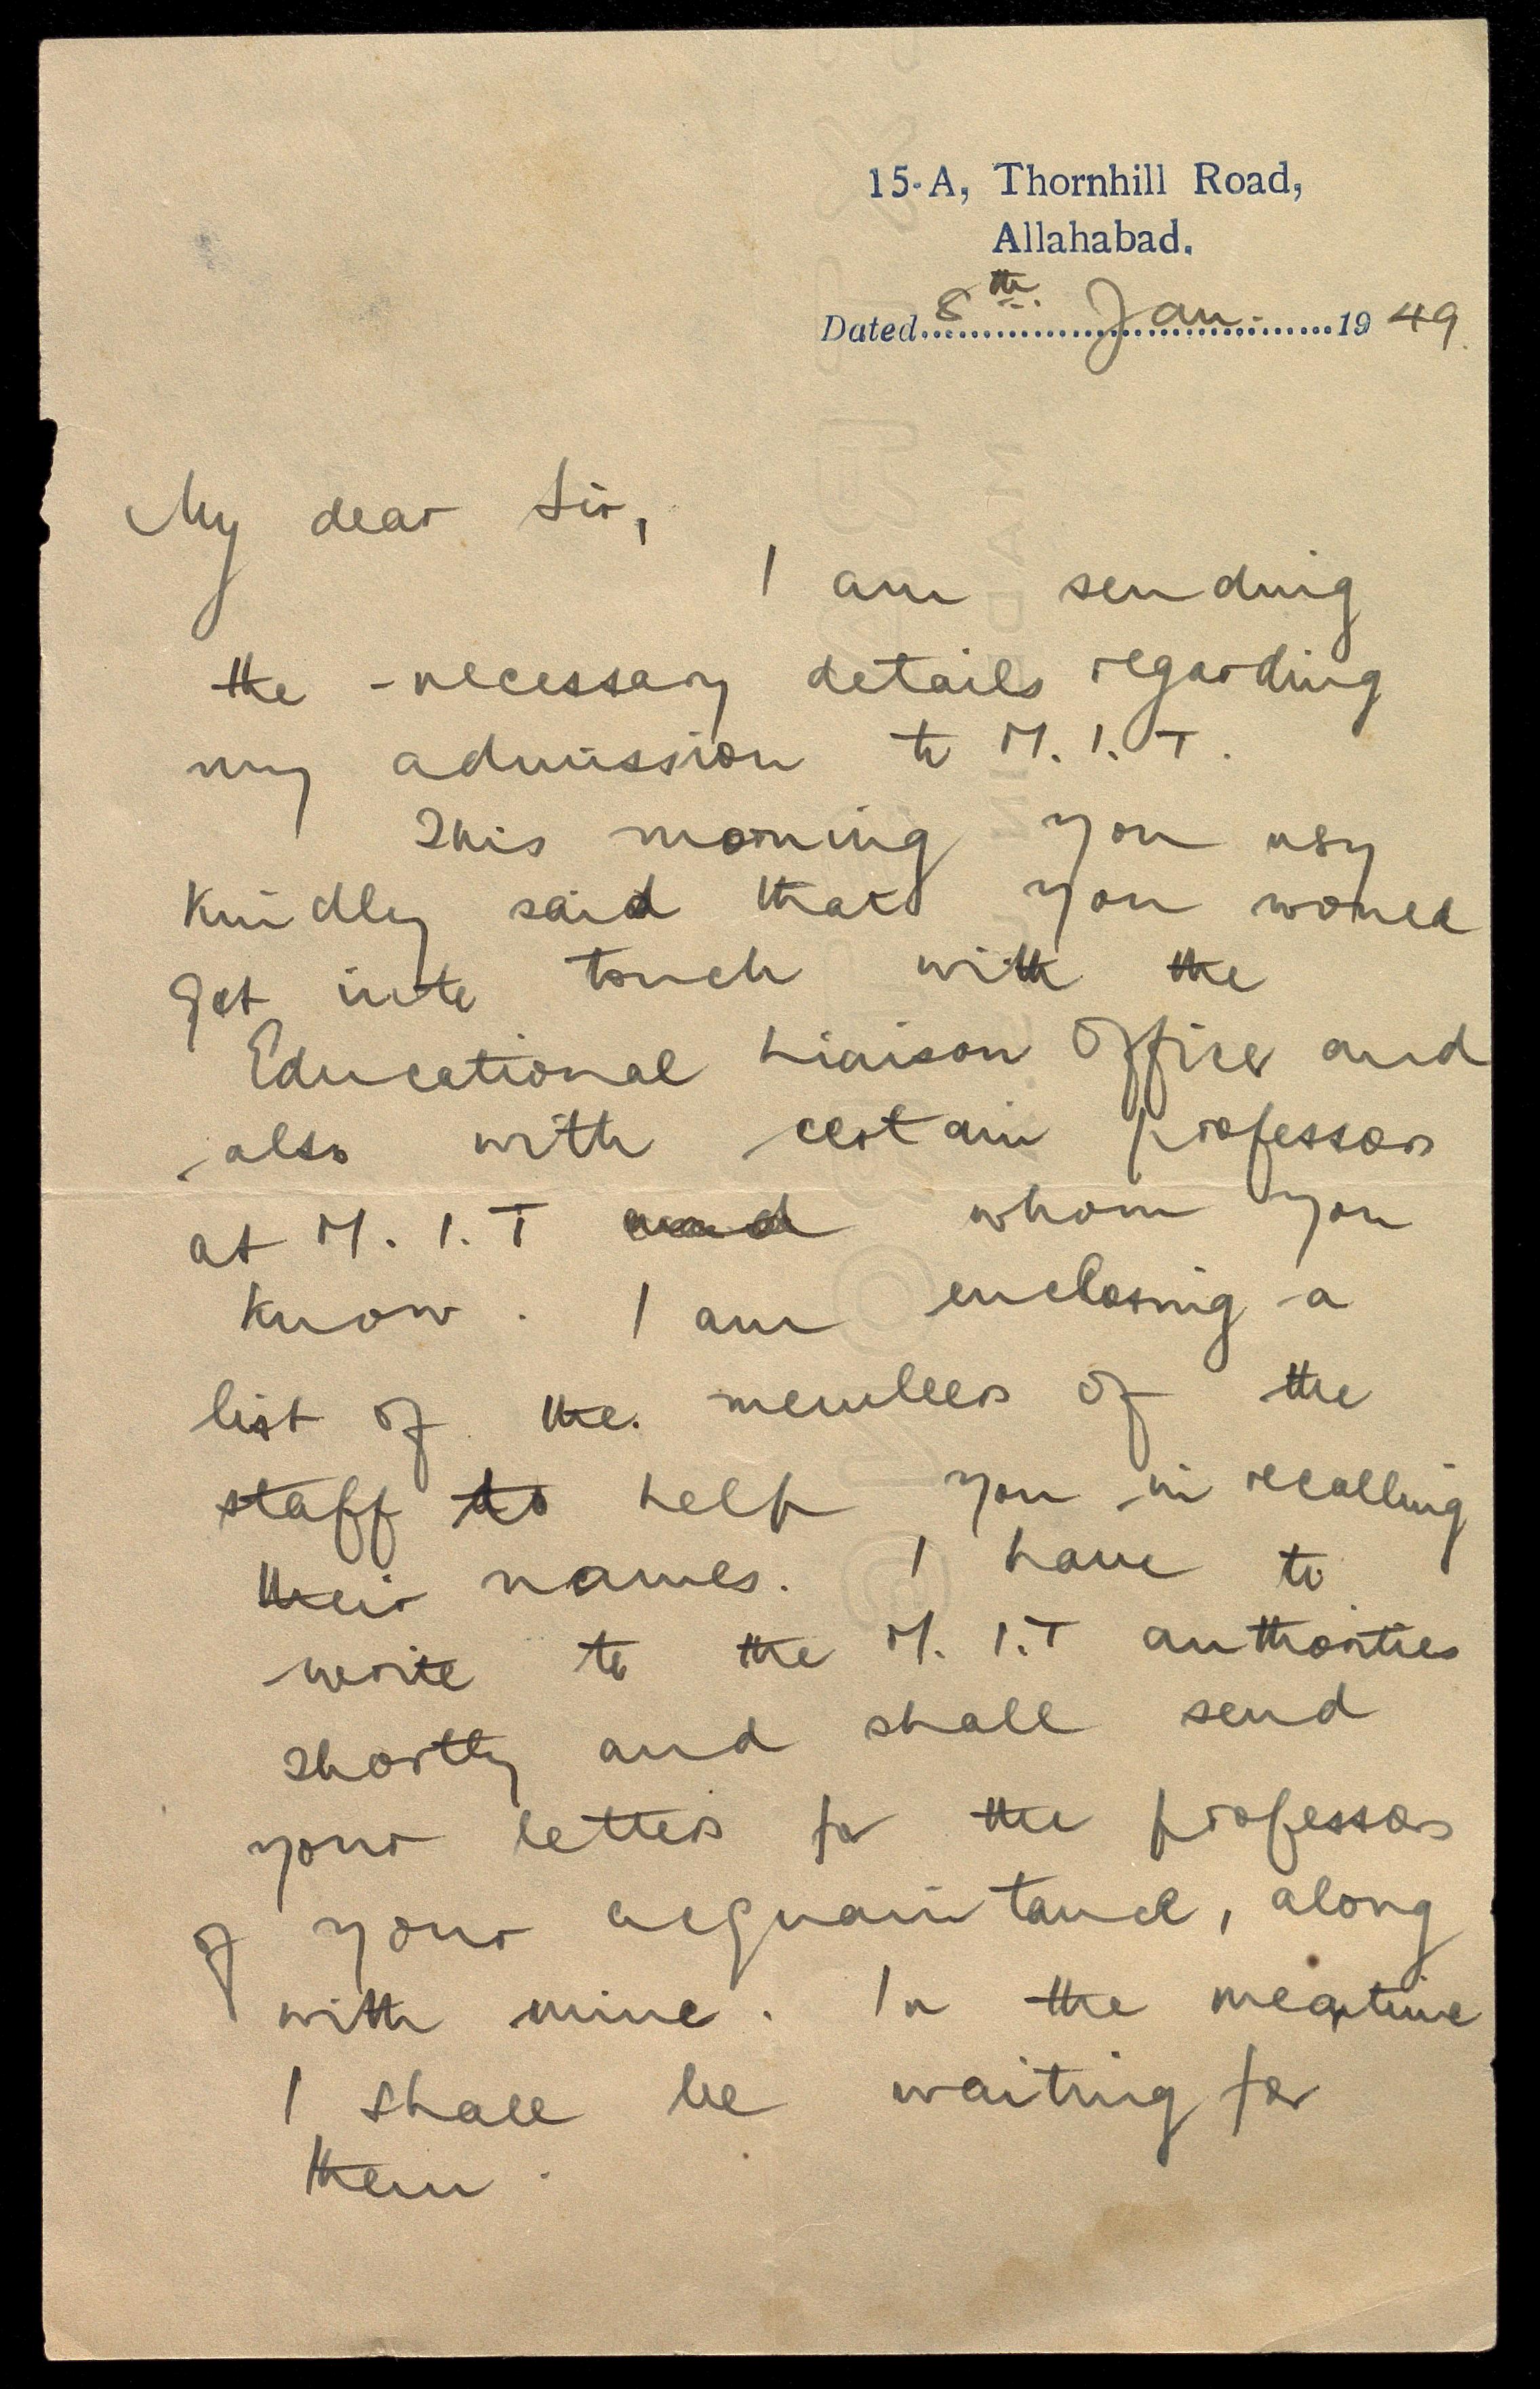 15-A, Thornhill Road,
Allahabad.
Dated 8th. Jan. 1949.
My dear Sir,
I am sending
the necessary details regarding
my admission to M.I.T.
This morning you very
kindly said that you would
get into touch with the
Educational Liaison Officer and
also with certain professors
at M.I.T and whom you
know. I am enclosing a
list of the members of the
staff to help you in recalling
their names. I have to
write to the M.I.T authorities
shortly and shall send
your letters for the professors
of your acquaintance, along
with mine. In the meantime
I shall be waiting for
them.